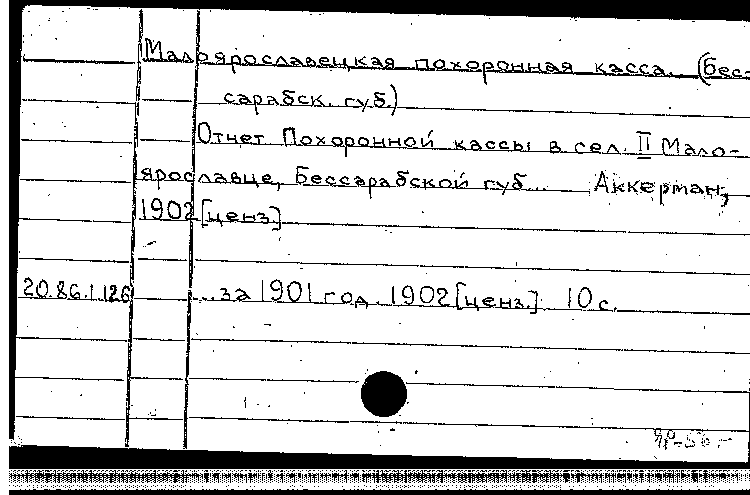 Малоярославецкая похоронная касса. (Бес-
сарабск. губ.)
Отчет Похоронной кассы в сел. II Мало-
ярославце, Бессарабской губ... Аккерман,
1902 [ценз.]
20.86.1.126 ...за 1901 год. 1902 [ценз.] 10 с.